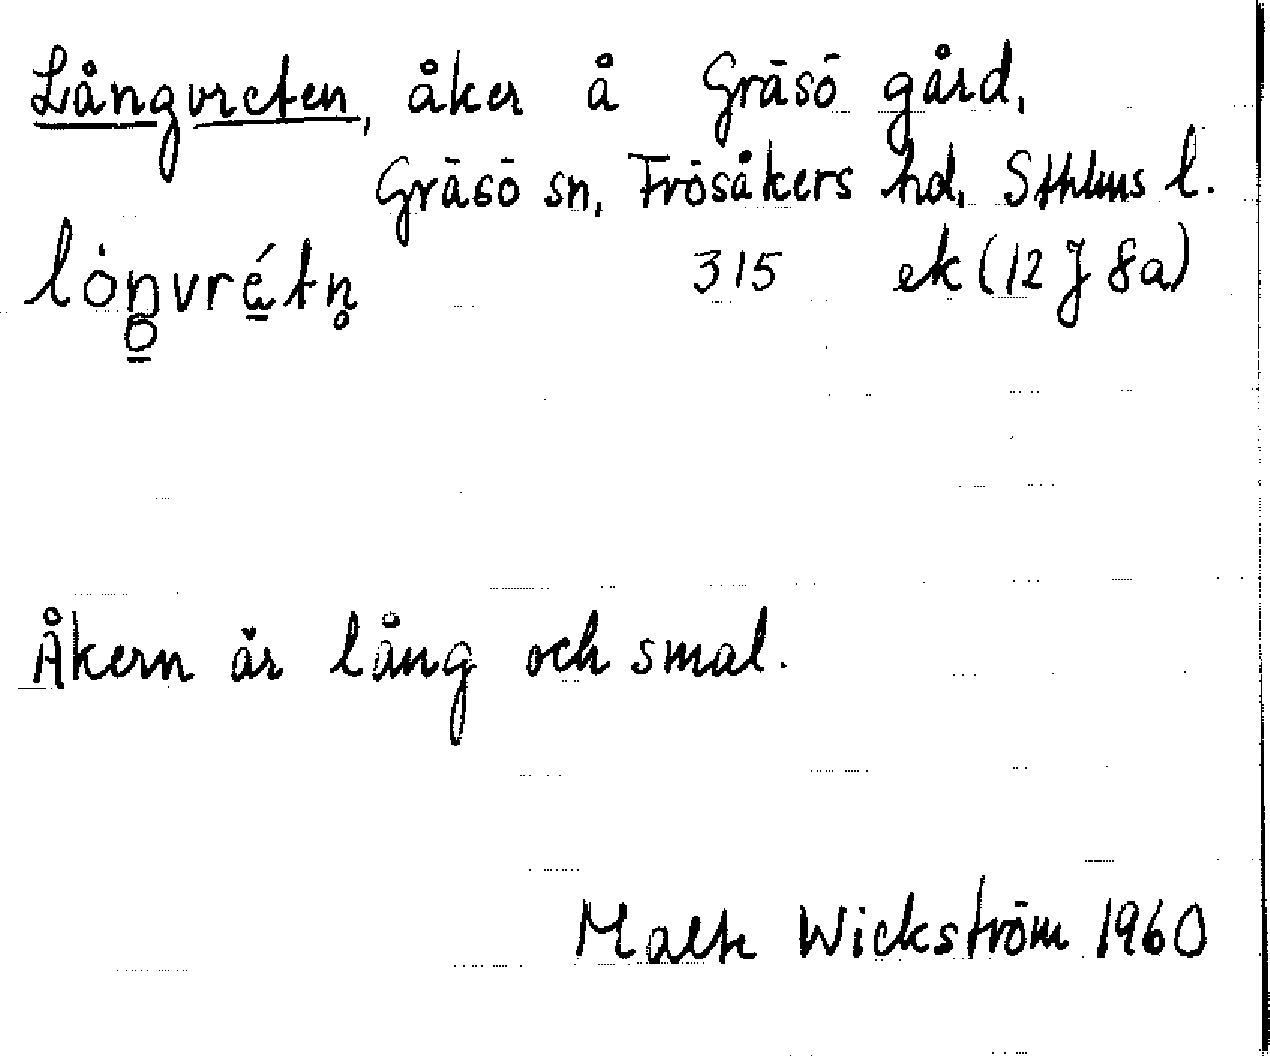 Långvreten, åker å Gräsö gård,
Gräsö sn, Frösåkers hd, Sthlms l.
315 ek (12 J 8a)
Åkern är lång och smal.
Malte Wickström 1960